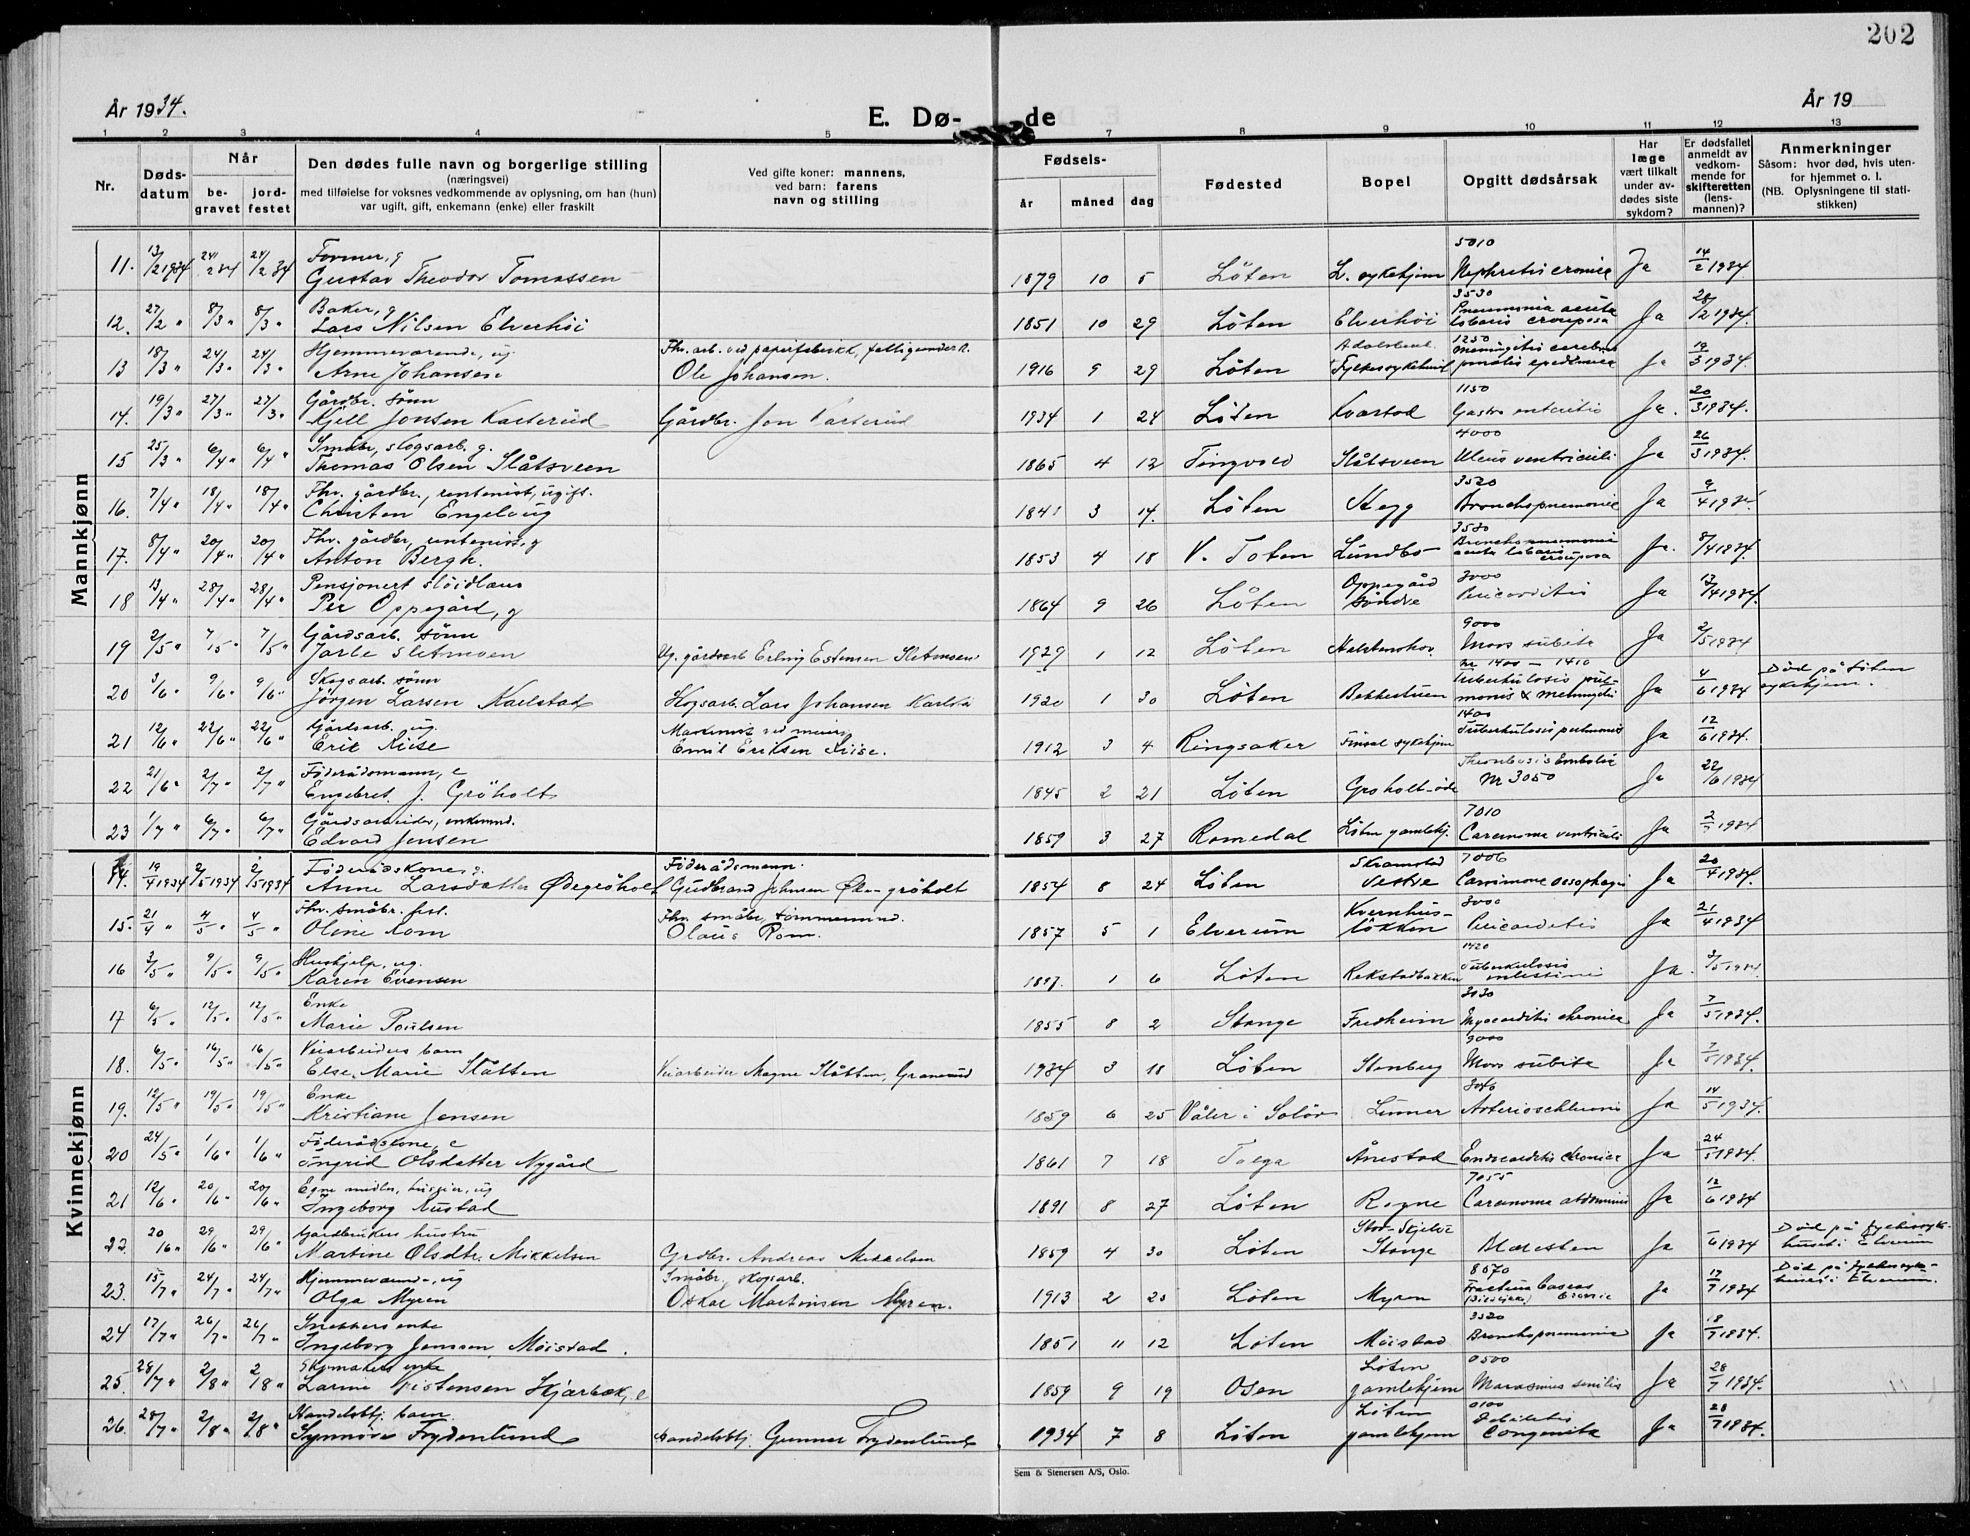 202
År 1934.
E. Dø- de
År 19
1 2 3 4 5 7 8 9 10 11 12 13
Nr.
Døds-
datum
Når
be-
gravet
jord-
festet
Den dødes fulle navn og borgerlige stilling
(næringsvei)
med tilføielse for voksnes vedkommende av oplysning, om han (hun)
var ugift, gift, enkemann (enke) eller fraskilt
Ved gifte koner: mannens,
ved barn: farens
navn og stilling
Fødsels-
år måned dag
Fødested
Bopel
Opgitt dødsårsak
Har
læge
vært tilkalt
under av-
dødes siste
sykdom?
Er dødsfallet
anmeldt av
vedkom-
mende for
skifteretten
(lens-
mannen)?
Anmerkninger
Såsom: hvor død, hvis uten-
for hjemmet o. l.
(NB. Oplysningene til stati-
stikken)
Mannkjønn
Former, g 5010
11. 13/2 1934 24/2 34 24/2 34 Gustav Theodor Tomassen 1879 10 5 Löten L. sykehjem Nephretis cronica Ja 14/2 1934
Baker, g 3530 Pneumonia acuta
12. 27/2 " 8/3 " 8/3 " Lars Nilsen Elverhöi 1851 10 29 Löten Elverhöi lobaris crouposa Ja 28/2 1934.
Hjemmeværende, ug. Fhv. arb. ved papirfabrikk, 1250
13 18/3 " 24/3 " 24/3 " Arne Johansen Ole Johansen. 1916 9 29 Löten Fylkessykehus Ja 19/3 1934.
Gårdbr. sönn 1150
14. 19/3 " 27/3 " 27/3 " Kjell Jonsen Karterud Gårdbr. Jon Karterud 1934 1 24 Löten Kvarstad Gastro enteritis Ja. 20/3 1934.
Småbr, skogsarb. g. 4000
15 25/3 " 6/4 " 6/4 " Thomas Olsen Slåtsveen 1865 4 12 Tingvold Slåtsveen Ulcus ventriculi Ja 26/3 1934.
Fhv. gårdbr., rentenist, ugift. 3520
16. 7/4 " 18/4 " 18/4 " Christen Engelaug 1841 3 14. Löten Hegg Bronchopnemonie Ja 9/4 1934
Fhv. gårdbr, rentenist, g 3530 Bronchopnemonia
17. 8/4 " 20/4 " 20/4 " Anton Bergh. 1853 4 18 V. Toten Lundbo acuta lobaris crouposa Ja. 8/4 1934.
Pensjonert slöidlærer Oppegård 3000
18 13/4 " 28/4 " 28/4 " Per Oppegård, g 1864 9 26 Löten Söndre Pericarditis Ja 13/4 1934.
Gårdsarb. sönn 9000
19 2/5 " 7/5 " 7/5 " Jarle Sletmoen Ug. gårdsarb Erling Estensen Sletmoen 1929 1 12 Löten Mors subita Ja 2/5 1934
Skogsarb. sönn Nr 1400 - 1410 Tuberkulosis pul- Död på Löten
20 3/6 " 9/6 " 9/6 " Jörgen Larsen Karlstad Skogsarb. Lars Johansen Karlstad 1920 1 30 Löten Bekkestuen monis & meningitis Ja 4/6 1934 sykehjem.
Gårdsarb. ug. Maskinist ved meieri 1400
21 12/6 " 22/6 " 22/6 " Erik Kiise Emil Eriksen Kiise. 1912 3 4 Ringsaker Finsal sykehjem Tuberkulosis pulmonis Ja 12/6 1934.
Föderådsmann, e Thrombosis Embolie
22 21/6 " 2/7 " 2/7 " Engebret J. Gröholt 1845 2 21 Löten Groholt-öde Nr 3050 Ja 22/6 1934
Gårdsarbeider, enkemnd. 7010
23 1/7 " 6/7 " 6/7 " Edvard Jensen 1859 3 27 Romedal Löten gamlehj. Carcinoma ventriculi Ja 2/7 1934
Kvinnekjønn
Föderådskone, g. Föderådsmann. Skramstad 7006
14. 19/4 1934 2/5 1934 2/5 1934 Anne Larsdatter Ødegröholt Gudbrand Johnsen Öde-gröholt 1854 8 24 Löten Vestre Ja 20/4 1934
Fhv. småbr. Fhv småbr, tömmermnd. Kvernhus- 3000
15. 21/4 " 4/5 " 4/5 " Oline Rom Olaus Rom. 1857 5 1 Elverum lökken Pericarditis Ja 21/4 1934
Hushjelp, ug. 1420 Tuberkulosis
16 3/5 " 9/5 " 9/5 " Karen Evensen 1 6 Löten Rekstadbakken intestini Ja. 3/5 1934
Enke 3030
17 6/5 " 12/5 " 12/5 " Marie Poulsen 1855 8 2 Stange Fredheim Myocarditis chronica Ja 7/5 1934.
Veiarbeiders barn 9000
18. 6/5 " 16/5 " 16/5 " Else Marie Slåtten Veiarbeider Magne Slåtten, Granerud 1934 3 18 Löten Stenberg Mors subita Ja 7/5 1934
Enke
19. 12/5 " 19/5 " 19/5 " Kristiane Jensen 1859 6 25 Våler i Solör Linner Ja 14/5 1934.
Föderådskone, e
20 24/5 " 1/6 " 1/6 " Ingrid Olsdatter Nygård 1861 7 18 Tolga Ånestad Endocarditis chronica Ja 24/5 1934.
Egne midler, ug 7055
21 12/6 " 20/6 " 20/6 " Ingeborg Kustad 1891 8 27 Löten Rogne Carcinoma abdominis Ja 12/6 1934
Gårdbrukers hustru Död på fylkessyke-
22. 20/6 " 29/6 " 29/6 " Martine Olsdtr. Mikkelsen Grdbr. Andreas Mikkelsen 1859 4 30 Löten Stange Ja /6 1934 huset i Elverum
Hjemmeværende, ug Småbr. skogsarb. 8070 Död på fylkessyke-
23. 15/7 " 24/7 " 24/7 " Olga Myren Oskar Martinsen Myren. 1913 2 Löten Myren Ja 17/7 1934 huset i Elverum.
Snekkers enke 3520
24 17/7 " 26/7 " 26/7 " Ingeborg Jensen Möistad. 1851 11 12 Löten Möistad Bronchopnemonia Ja 18/7 1934.
Skomakers enke Löten 0500
25. 28/7 " 2/8 " 2/8 " Kristensen Hjarbæk, e 1859 9 19 Osen gamlehjem Marasmus senilis Ja 28/7 1934.
Handelsbtj. barn. Löten 0100 Debilitas
26. 28/7 " 2/8 " 2/8 " Synnöve Frydenlund Handelsbtj. Gunnar Frydenlund 1934 7 8 Löten gamlehjem Congenita Ja 28/7 1934.
Sem & Stenersen A/S, Oslo.